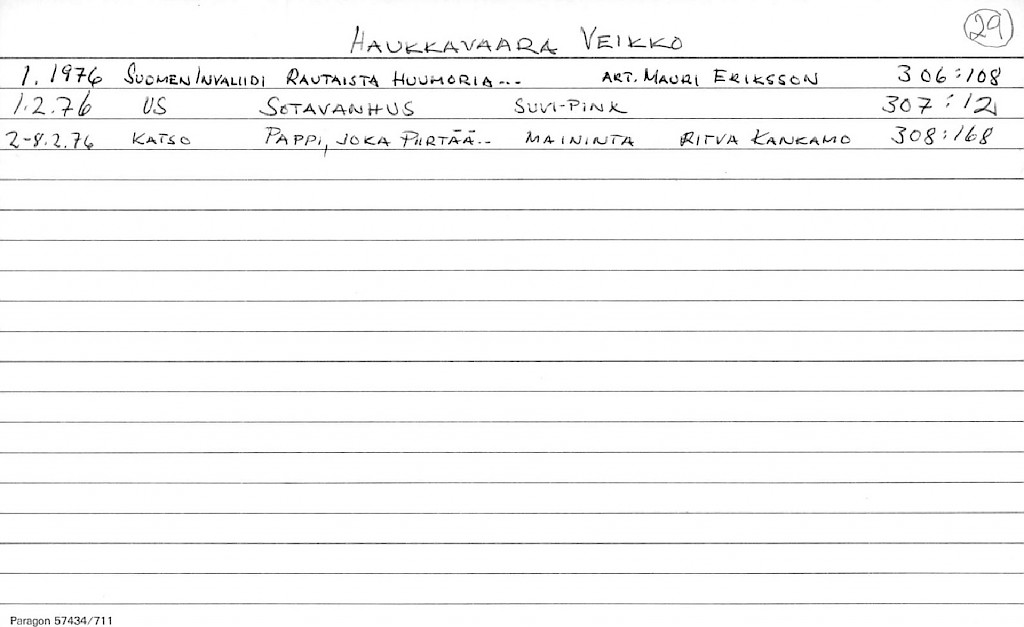 29
HAUKKAVAARA VEIKKO
1.1976 SUOMEN INVALIIDI RAUTAISTA HUUMORIA... ART. MAURI ERIKSSON 306:108
1.2.76 US SOTAVANHUS SUVI-PINK 307:12
2-8.2.76 KATSO PAPPI, JOKA PIIRTÄÄ.. MAININTA RITVA KANKAMO 308:168
Paragon 57434/711